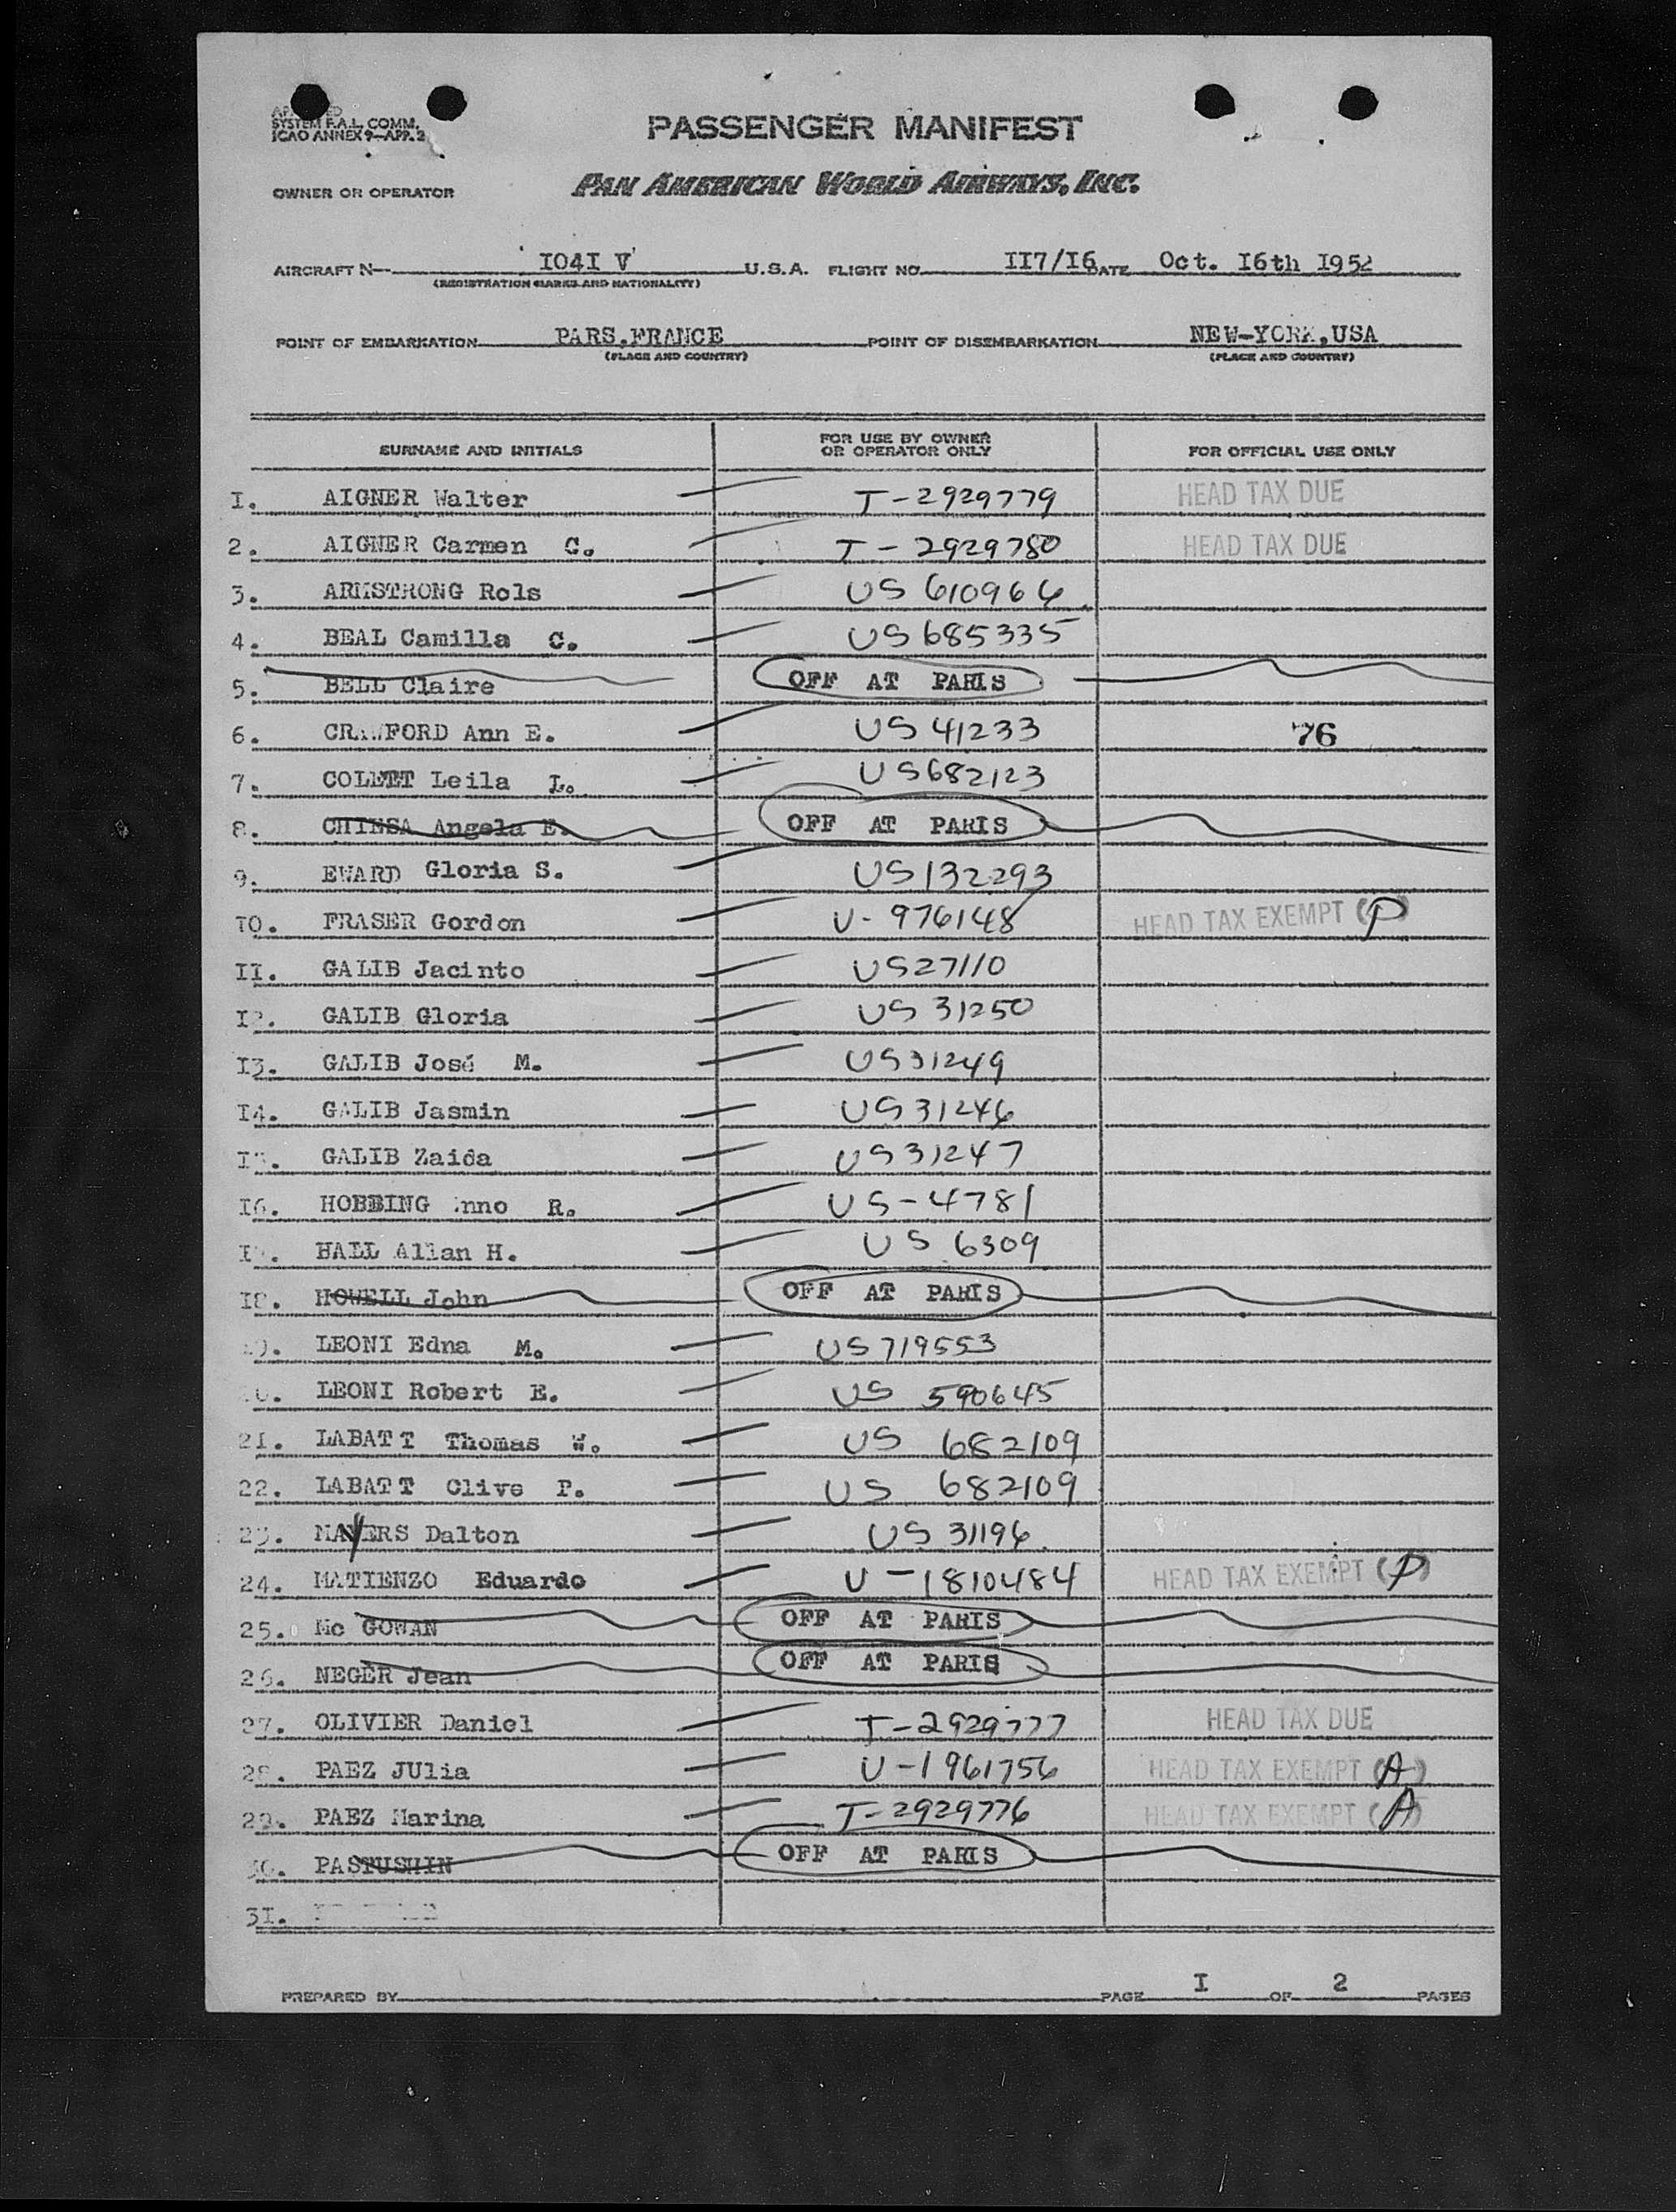 SYSTEM F.A.L. COMM.
ICAO ANNEX 9—APP. 2
PASSENGER MANIFEST
OWNER OR OPERATOR PAN AMERICAN WORLD AIRWAYS, INC.
AIRCRAFT N— I04I V U.S.A. FLIGHT NO. II7/I6 DATE Oct. I6th I952
(REGISTRATION MARKS AND NATIONALITY)
POINT OF EMBARKATION PARS,FRANCE POINT OF DISEMBARKATION NEW-YORK,USA
(PLACE AND COUNTRY) (PLACE AND COUNTRY)
SURNAME AND INITIALS FOR USE BY OWNER OR OPERATOR ONLY FOR OFFICIAL USE ONLY
I. AIGNER Walter T-2929779 HEAD TAX DUE
2. AIGNER Carmen C. T-2929780 HEAD TAX DUE
3. ARMSTRONG Rols US 610966
4. BEAL Camilla C. US 685335
5. BELL Claire OFF AT PARIS
6. CRAWFORD Ann E. US 41233 76
7. COLETT Leila L. US682123
8. CHIESA Angela E. OFF AT PARIS
9. EWARD Gloria S. US132293
I0. FRASER Gordon V-976148 HEAD TAX EXEMPT (P)
II. GALIB Jacinto US27110
I2. GALIB Gloria US 31250
I3. GALIB José M. US31249
I4. GALIB Jasmin US31246
I5. GALIB Zaida US31247
I6. HOBBING R. US-4781
I7. HALL Allan H. US 6309
I8. HOWELL John OFF AT PARIS
I9. LEONI Edna M. US719553
20. LEONI Robert E. US 590645
2I. LABATT Thomas W. US 682109
22. LABATT Clive P. US 682109
23. MAYERS Dalton US 31196
24. MATIENZO Eduardo V-1810484 HEAD TAX EXEMPT (P)
25. Mc GOWAN OFF AT PARIS
26. NEGER Jean OFF AT PARIS
27. OLIVIER Daniel T-2929777 HEAD TAX DUE
28. PAEZ JUlia V-1961756 HEAD TAX EXEMPT (A)
29. PAEZ Marina T-2929776 HEAD TAX EXEMPT (A)
30. PASTUSHIN OFF AT PARIS
3I.
PREPARED BY PAGE I OF 2 PAGES